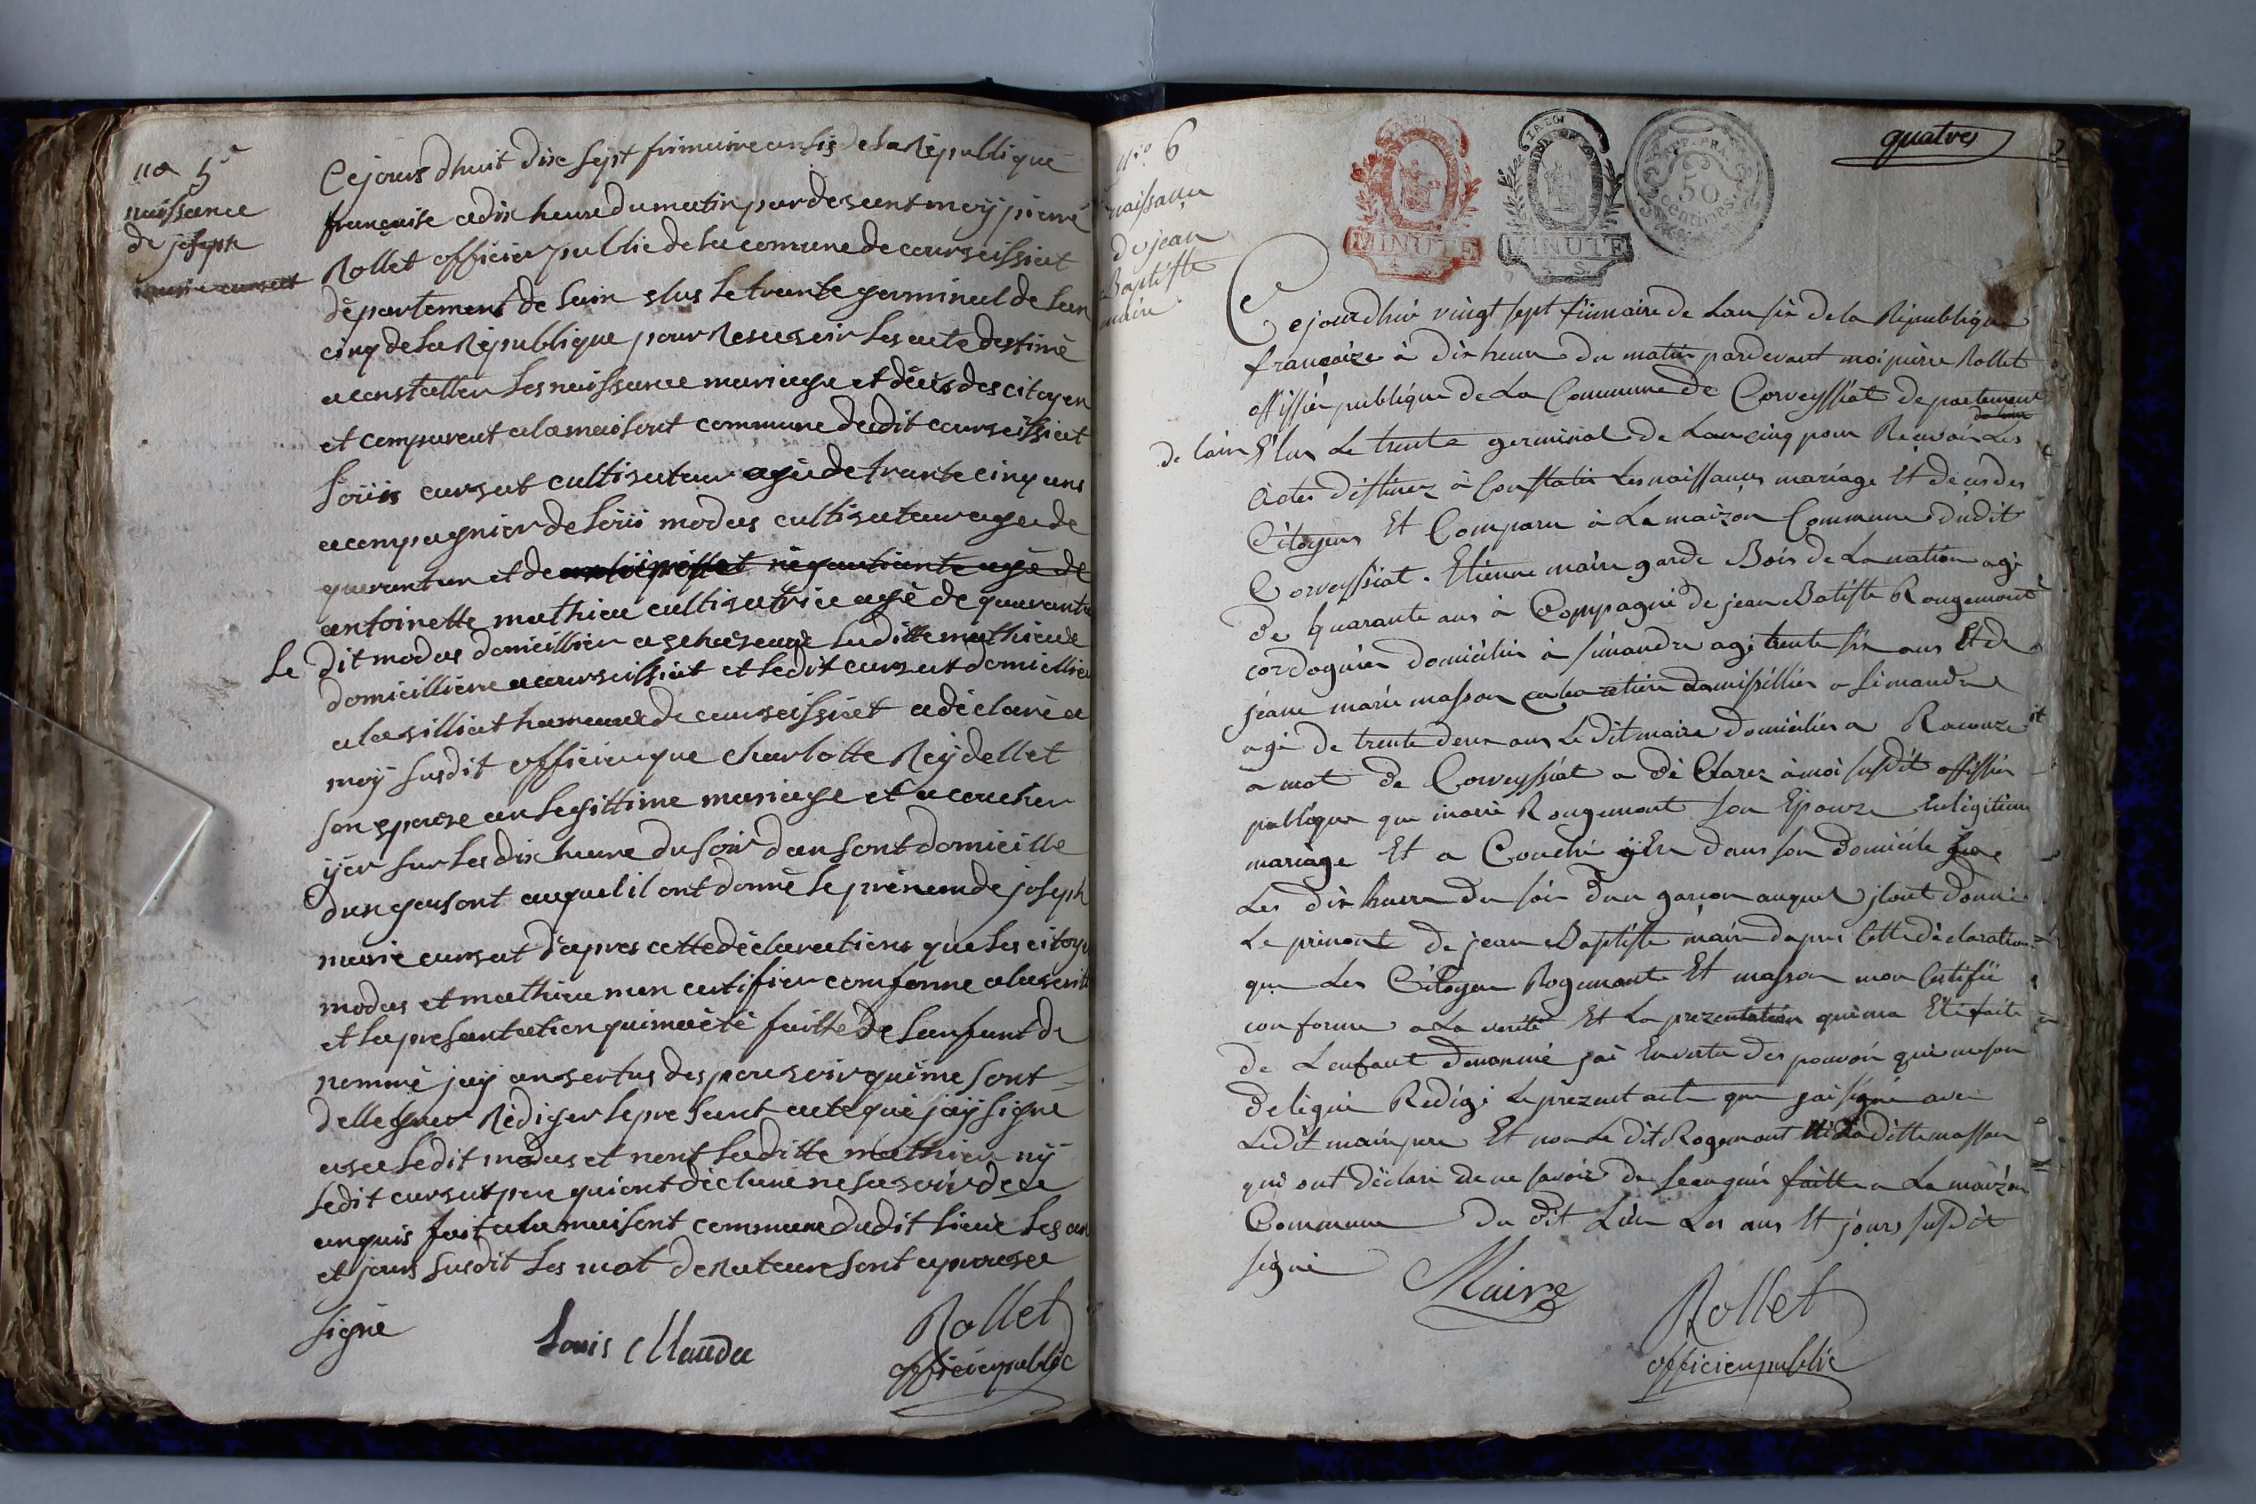 no 5e
naissance
de joseph
marie cursat
Ce jours dhuit dix sept frimaire an sis de la Republique
françoise a dix heure du matin par desant moy pierre
Rollet officier public de la comune de courseissiat
département de lain elus le trante germinal de lan
cinq de la République pour Resusoir les acte destiné
a constatter les naissance mariage et décès des citoyen
et comparent a la maisont commune dudit courseissiat
loüis cursat cultisateur agé de trante cinq ans
acompagnier de loüis modas cultisateur age de
quarant un et de negantiante agé de
antoinette mathieu cultisatrice agé de quarante
Le dit modas domicillier a laditte mathieu
domicilliere a courseissiat et ledit cursat domicillier
a la silliat hameaux de courseissiat a déclaré a
moy susdit officier que charlotte Reydellet
son epouse an legittime mariage et a coucher
ÿer sur les dix heure du soir dan sont domicille
dun garsont auquel il ont donné le prenom de joseph
marie cursat d'apres cette déclaration que les citoye
modas et mathieu mon certifier comforme a la serité
et la presantation qui ma eté faitte de lanfant de
nommé jay an sertus des pousoir quime sont
dellegner Rédiger le present acte que jaÿ signe
asec ledit modas et nont laditte mathieu nÿ
ledit cursat pere qui ont déclaré ne sasoir de ce
anquis fait a la maisont commune dudit lieue les an
et jours susdit les mot de Rature sont aprouse
signé
Louis Maudu
Rollet
officier public
N.o 6
naissance
de jean
Baptiste
maire
MINUTE
MINUTE
50
centimes
quatres
Cejourdhui vingt sept frimaire de Lan six de la République
françaize à dix heure du matin pardevant moi pierre Rollet
offissier publique de La Commune de Corveyssiat departement
de lain
de lain Elus Le trente germinal de Lan cinq pour Recevoir Les
actes destinez à Constatir Les naissances mariage Et deces des
Citoyens Et Comparu à La maizon Commune dudit
Corveyssiat. Etienne maire garde Bois de La nation agé
de quarante ans à Compagnié de jean Batiste Rougemont
cordognier domicilier à simandre agé trente six ans Et de
jeane marie masson domissillier a simandre
agé de trente deux ans Ledit maire domicilier a Racouze
amot de Corveyssiat a dé Clarez à moi susdit offissier
publique que marie Rougemont son Epouze En légitime
mariage Et a Couché yEr dans son domicile
Les dix heure du soir dun garcon auquel jlont donné
Le prenont de jean Baptiste maire dapres Cette déclaration
que Les Citoyen Rogemonte Et masson mon Certifié
conforme a La verité Et La prezentation quima Eté faite
de Lenfant denommé jai En vertu des pouvoir qui me son
delégué Redigé Le prezent acte que jai signé avec
Ledit maire pere Et non Le dit Rogemont Laditte masson
qui ont declaré de ne savoir de se enquis faitte a La maizon
Commune du dit Lieu Les ans Et jours susdit
signé
Maire
Rollet
officier public